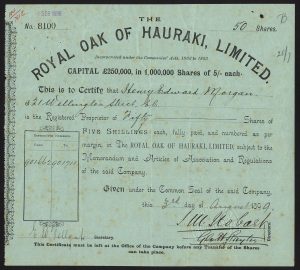 THE
No. 8100
50 Shares.
ROYAL OAK OF HAURAKI, LIMITED.
Incorporated under the Companies' Acts, 1862 to 1893.
CAPITAL £250,000, in 1,000,000 Shares of 5/- each.
This is to Certify that Henry Edward Morgan
is the Registered Proprietor of Fifty Shares of
FIVE SHILLINGS each, fully paid, and numbered as per
margin, in The ROYAL OAK OF HAURAKI, LIMITED, subject to the
Memorandum and Articles of Association and Regulations
of the said Company.
Given under the Common Seal of the said Company,
this 3rd day of August 1899
Secretary.
This Certificate must be left at the Office of the Company before any Transfer of the Shares
can take place.